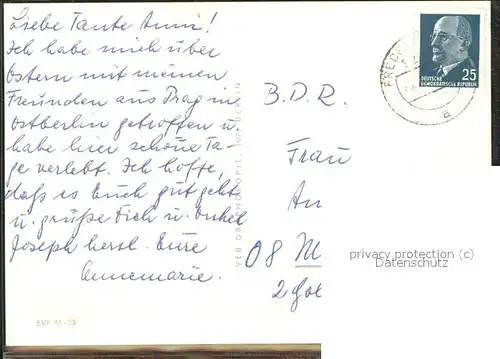 Liebe Tante Anni!
Ich habe mich über
Ostern mit meinen
Freunden aus Prag in
Ostberlin getroffen u.
habe hier schöne Ta-
ge verlebt. Ich hoffe,
daß es Euch gut geht
u. grüße Dich u. Onkel
Joseph herzl. Eure
Annemarie.
EVP M -,25
VEB GRAPHOKOPIE, BERLIN
25
DEUTSCHE
DEMOKRATISCHE REPUBLIK
a
B.D.R.
Frau
An
08 M
2 Gol
privacy protection (c)
Datenschutz